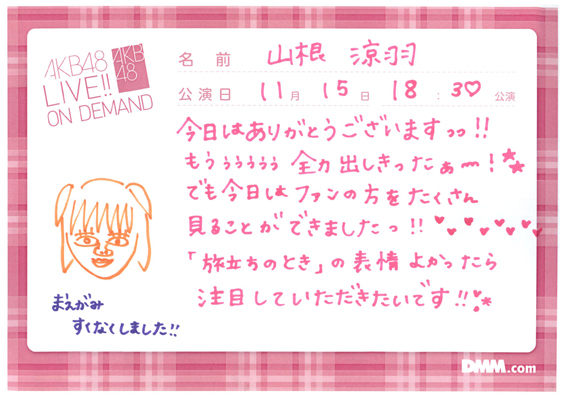 AKB48
LIVE!!
ON DEMAND
AKB
48
名前 山根 涼羽
公演日 11月 15日 18:30♡公演
今日はありがとうございますっっ!!
もうぅぅぅぅぅ 全力出しきったぁ〜!
でも今日は ファンの方をたくさん
見ることができましたっ!!
「旅立ちのとき」の表情 よかったら
注目していただきたいです!!
まえがみ
すくなくしました!!
DMM.com